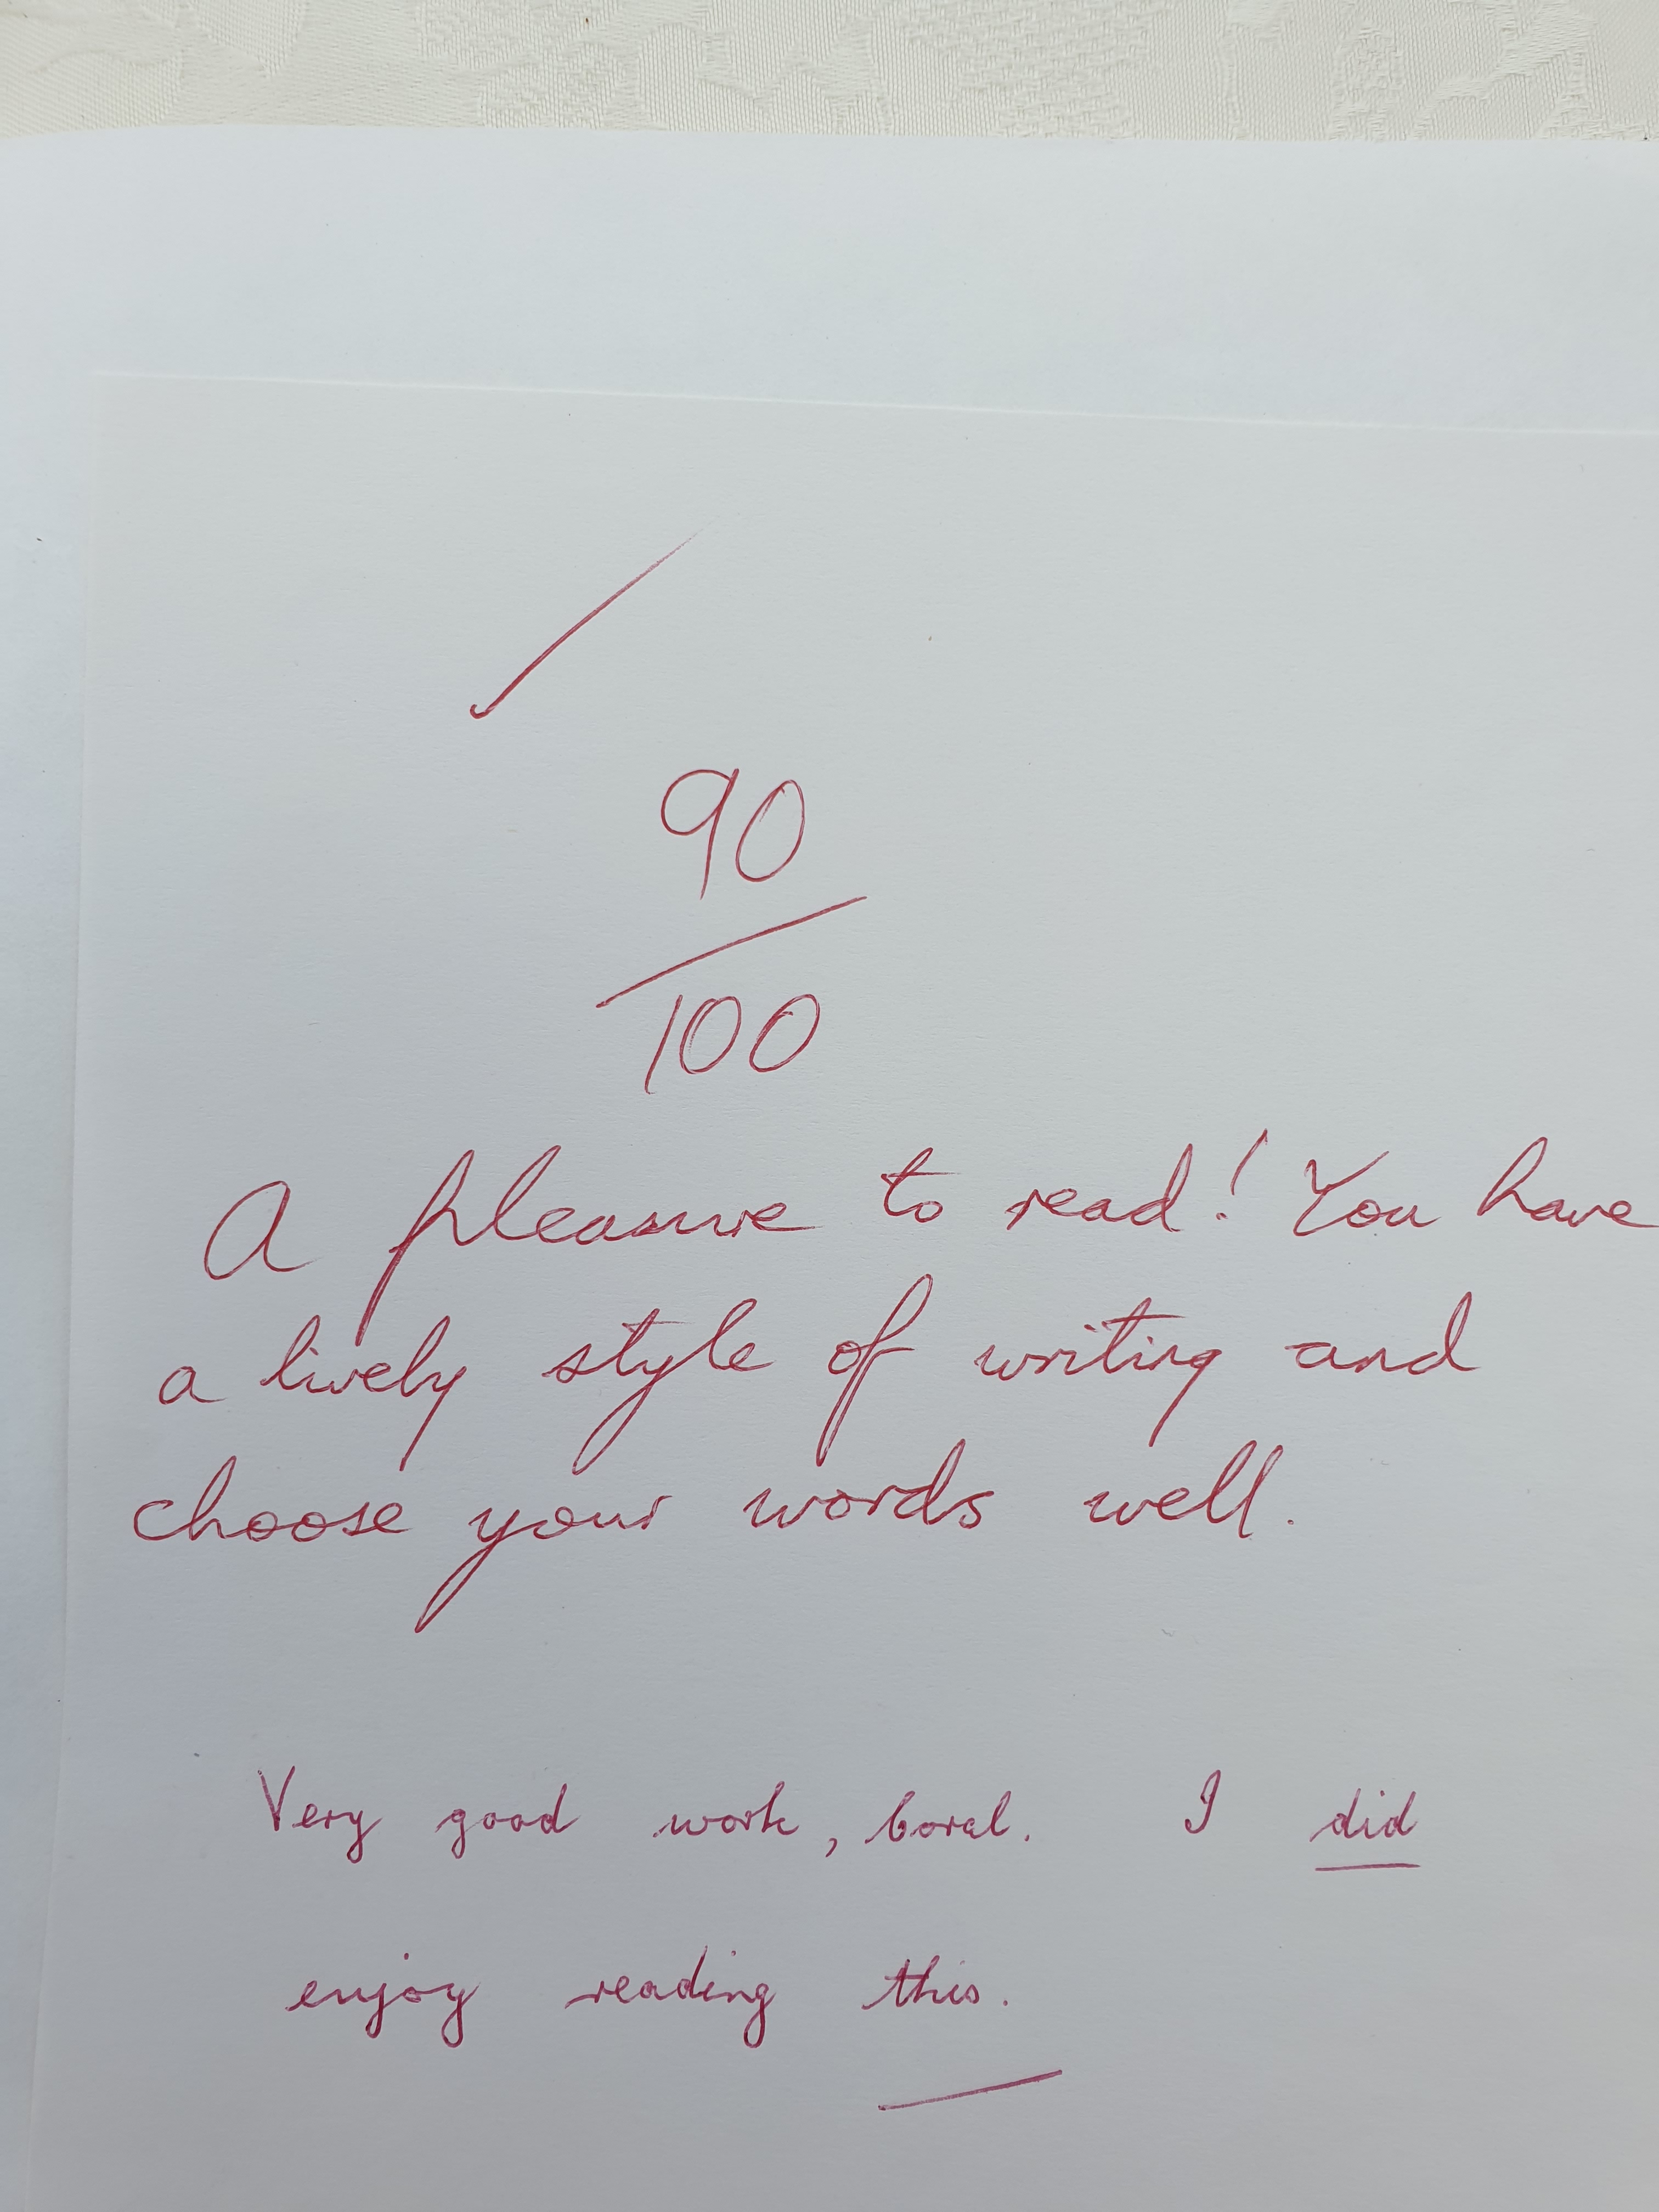 90
100
A pleasure to read! You have
a lively style of writing and
choose your words well.
Very good work, . I did
enjoy reading this.